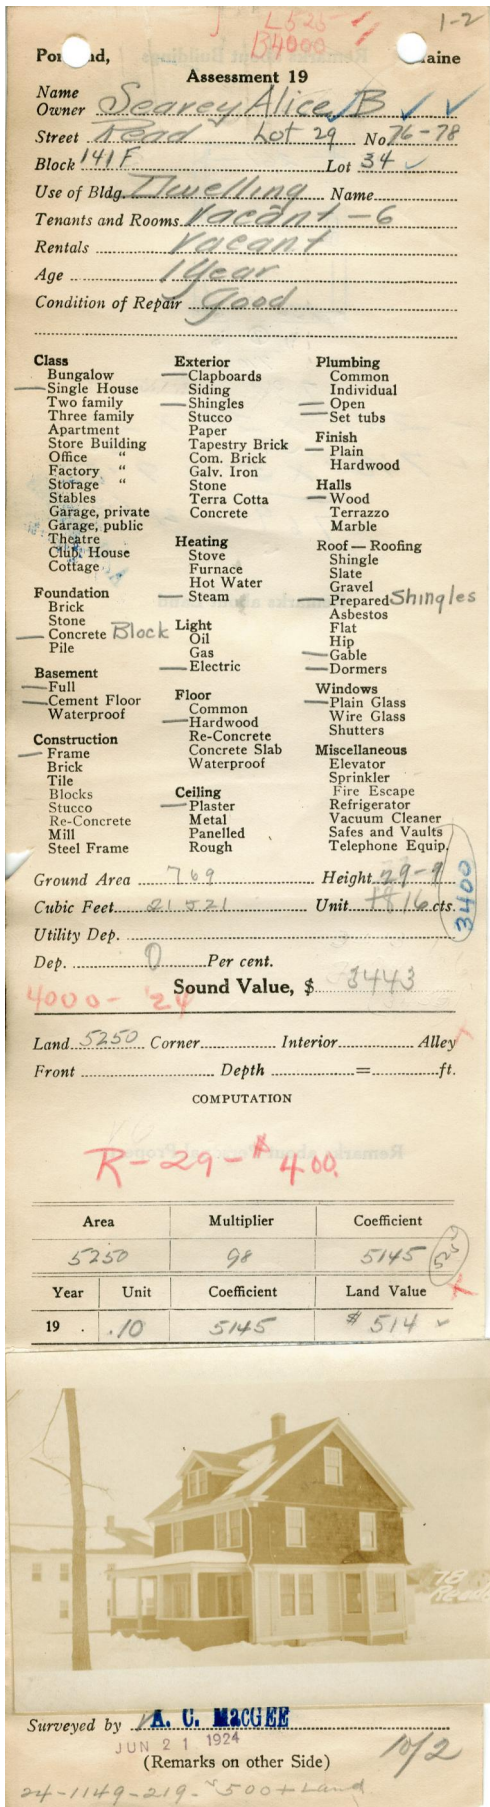 L525-
B4000
1-2
Portland, Maine
Assessment 19
Name
Owner Searey Alice B
Street Read Lot 29 No 76-78
Block 141F Lot 34
Use of Bldg. Dwelling Name
Tenants and Rooms Vacant - 6
Rentals Vacant
Age 1 Year
Condition of Repair Good
Class
Bungalow
Single House
Two family
Three family
Apartment
Store Building
Office "
Factory "
Storage "
Stables
Garage, private
Garage, public
Theatre
Club House
Cottage
Foundation
Brick
Stone
Concrete Block
Pile
Basement
Full
Cement Floor
Waterproof
Construction
Frame
Brick
Tile
Blocks
Stucco
Re-Concrete
Mill
Steel Frame
Exterior
Clapboards
Siding
Shingles
Stucco
Paper
Tapestry Brick
Com. Brick
Galv. Iron
Stone
Terra Cotta
Concrete
Heating
Stove
Furnace
Hot Water
Steam
Light
Oil
Gas
Electric
Floor
Common
Hardwood
Re-Concrete
Concrete Slab
Waterproof
Ceiling
Plaster
Metal
Panelled
Rough
Plumbing
Common
Individual
Open
Set tubs
Finish
Plain
Hardwood
Halls
Wood
Terrazzo
Marble
Roof — Roofing
Shingle
Slate
Gravel
Prepared Shingles
Asbestos
Flat
Hip
Gable
Dormers
Windows
Plain Glass
Wire Glass
Shutters
Miscellaneous
Elevator
Sprinkler
Fire Escape
Refrigerator
Vacuum Cleaner
Safes and Vaults
Telephone Equip.
Ground Area 769 Height 29-9
Cubic Feet 21521 Unit 16 cts.
3400
Utility Dep.
Dep. 0 Per cent.
Sound Value, $ 3443
4000- '24
Land 5250 Corner Interior Alley
Front Depth = ft.
COMPUTATION
R-29-$400.
Area Multiplier Coefficient
5250 98 5145
525
Year Unit Coefficient Land Value
19 .10 5145 $ 514
78
Surveyed by A. C. MacGEE
JUN 21 1924
(Remarks on other Side)
10/2
24-1149-219- $500 + Land